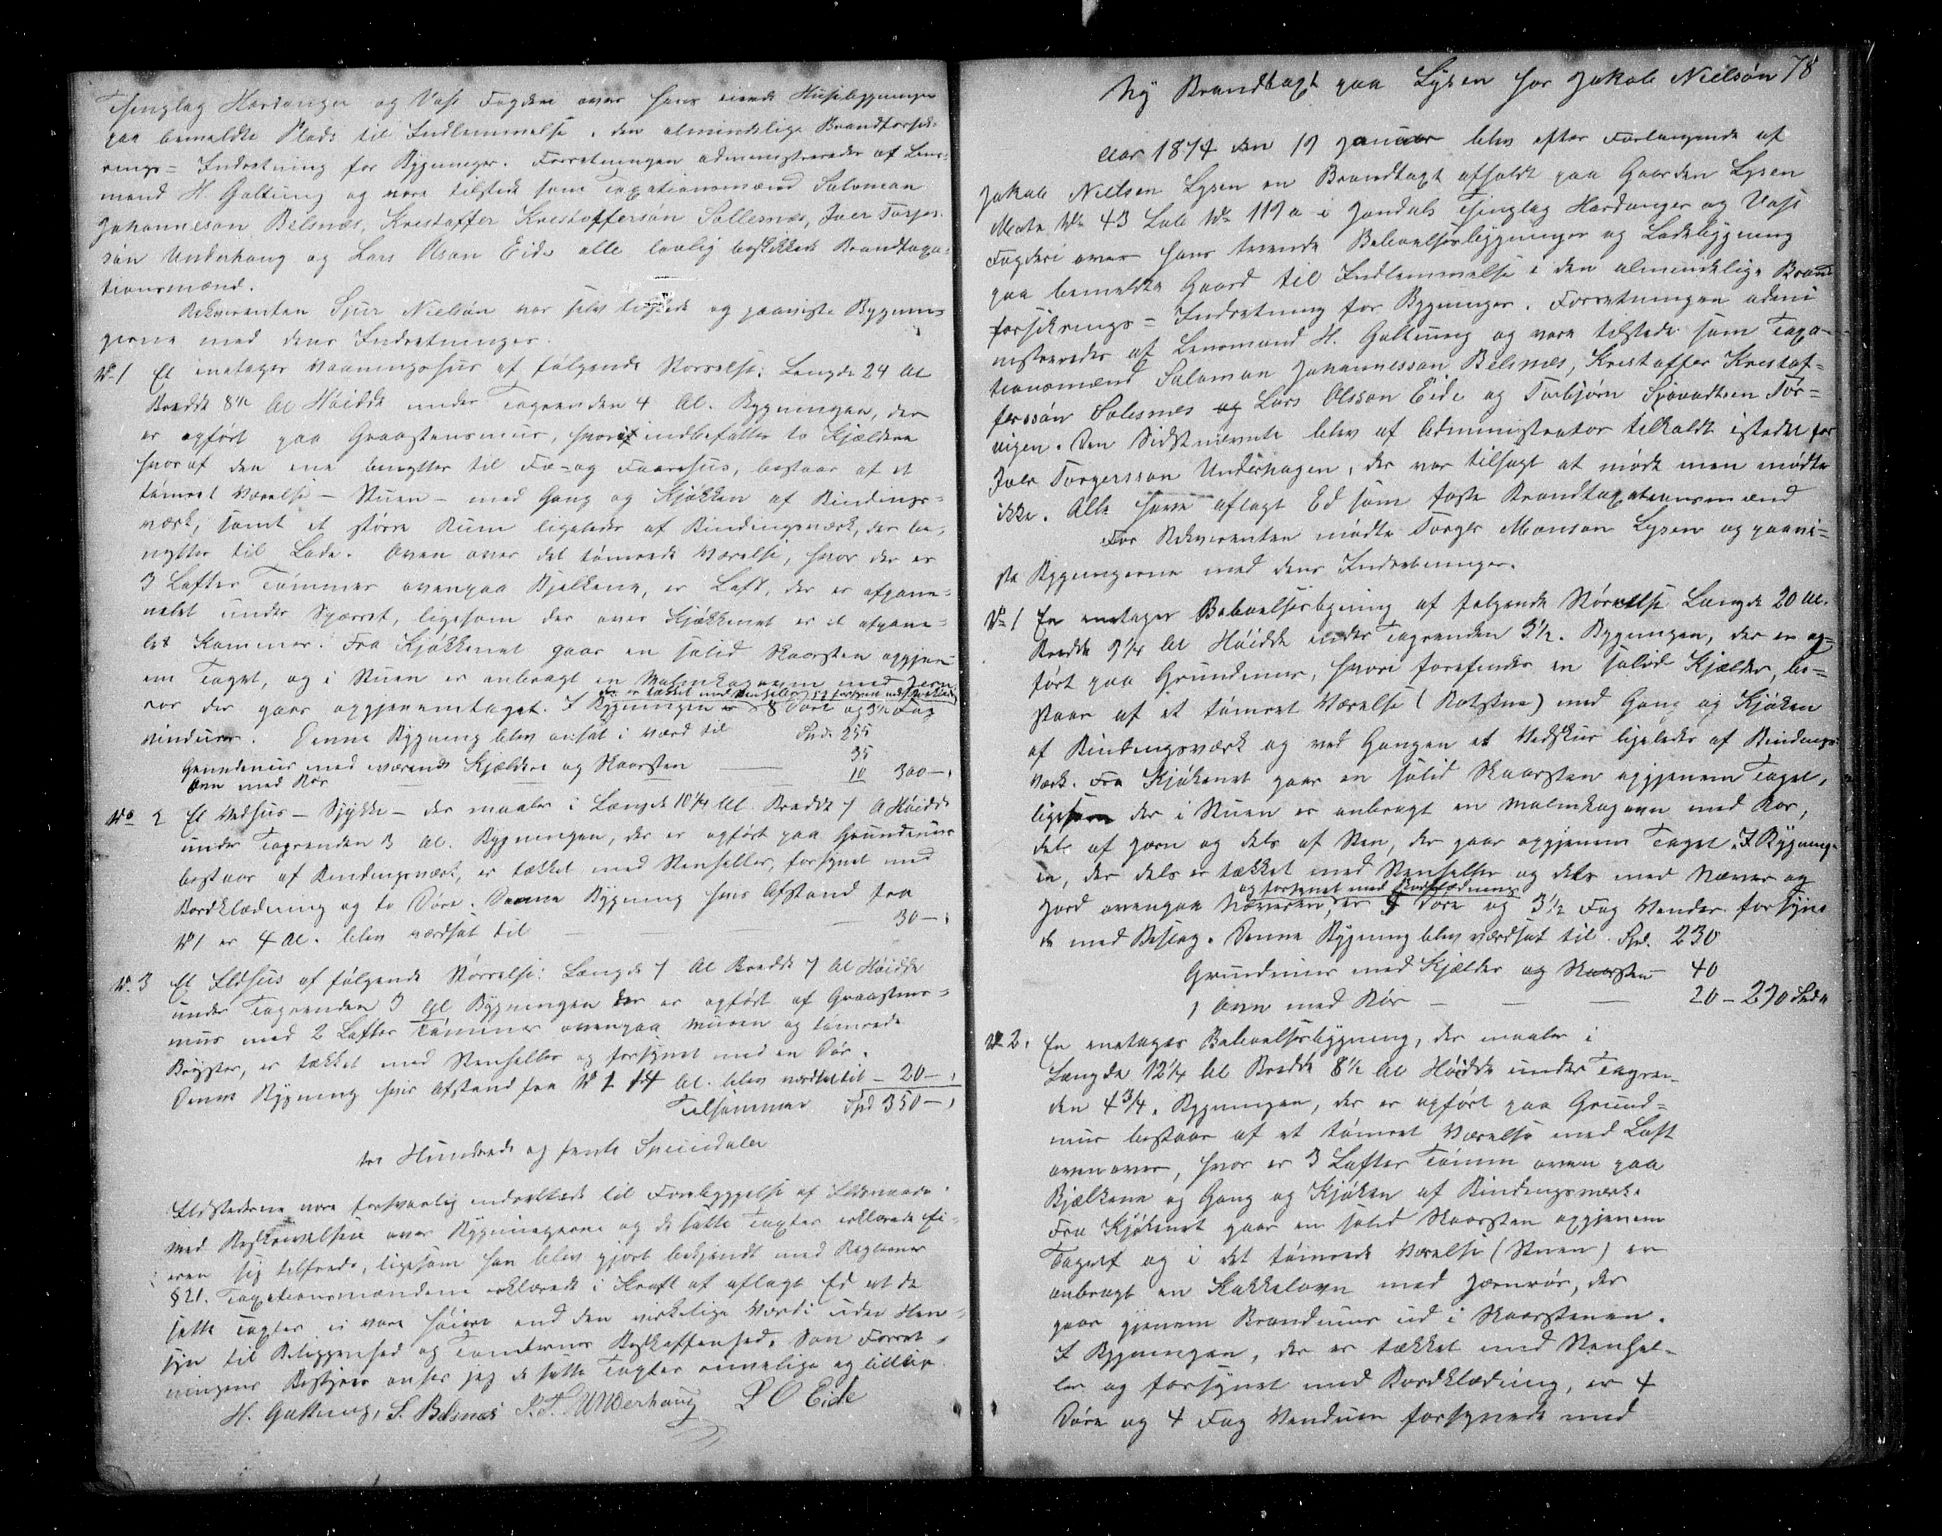 Thinglag Hardanger og Vos Fogderi over hans eiende Husebygninger
paa bemeldte Plads til Indlemmelse i den almindelige Brandforsik-
rings= Indretning for Bygninger. Forretningen administreredes af Lens-
mand H. Galtung og vare tilstede som Taxationsmænd Salomon
Johanneson Belsnæs, Krestoffer Krestoffersøn Sollesnæs, Iver Torjer-
søn Underhaug og Lars Olson Eide alle lovlig beskikkede Brandtaxa-
tionsmænd.
Rekvirenten Sjur Nielsøn var selv tilstede og paaviste Bygnin-
gerne med dens Indretninger.
No 1 Et enetages Vaaningshus af følgende Størrelse: Længde 24 Al
Bredde 8½ Al Høidde under Tagrenden 4 Al. Bygningen, der
er opført paa Graastensmur, hvori indbefattes to Kjældere
hvoraf den ene benyttes til Fæ- og Faarehus, bestaar af et
tømret Værelse – Stuen – med Gang og Kjøkken af Bindings-
værk, samt et større Rum ligeledes af Bindingsværk, der be-
nyttes til Lade. Oven over det tømrede Værelse, hvor der er
3 Lafter Tømmer ovenpaa Bjelkene, er Loft, der er afpane-
let under Spærret, ligesom der over Kjøkkenet er et afpane-
let Kammer. Fra Kjøkkenet gaar en solid Skorsten opgjen-
em Taget, og i Stuen er anbragt en Malmkagovn med Jern
rør der gaar opgjennem taget. I Bygningen er 8 Døre og 3½ Fag
der er tækket med Stenheller og forsynet med Bordklædn
vinduer. Denne Bygning blev ansat i Værd til Spd. 255
Grundmur med værende Kjældere og Skorsten — 35
Ovn med Rør — 10 300 – ,
No 2 Et Vedhus – Skykke – der maaler i Længde 10¼ Al. Bredde 7 Al Høidde
under Tagrenden 3 Al. Bygningen, der er opført paa Grundmur
bestaar af Bindingsværk, er tækket med Stenheller, forsynet med
Bordklædning og to Døre. Denne Bygning hvis Afstand fra
No 1 er 4 Al. blev værdsat til — 30 – ,
No 3 Et Ildhus af følgende Størrelse: Længde 7 Al Bredde 7 Al Høidde
under Tagrenden 3 Al Bygningen der er opført af Graastens-
mur med 2 Lafter Tømmer ovenpaa Muren og tømrede
Bryster, er tækket med Stenheller og forsynet med en Dør.
Denne Bygning hvis Afstand fra No 1 14 Al. blev værdsat til – 20 – ,
Tilsammen Spd 350 – ,
tre Hundrede og femti Speciedaler
Ildstederne vare forsvarlig indrettede til Forebyggelse af Ildsvaade.
Med Beskrivelsen over Bygningerne og de satte Taxter erklærede Ei-
eren sig tilfreds, ligesom han blev gjort bekjendt med Reglerne
§ 21. Taxationsmændene erklærede i Kraft af aflagt Ed at de
satte Taxter ei vare høiere end den virkelige Værdi under Hen-
syn til Beliggenhed og Tomternes Beskaffenhed. Som Forret-
ningens Bestyrer anser jeg de satte Taxter rimelige og billige.
H. Galtung, S. Belsnæs I. T. Underhaug L O Eide
Ny Brandtaxt paa Lysen for Jakob Nielsøn 78
Aar 1874 den 19 Januar blev efter Forlangende af
Jakob Nielsen Lysen en Brandtaxt afholdt paa Gaarden Lysen
Matr. No 43 Løb. No 119a i Jondals Thinglag Hardanger og Vos
Fogderi over hans tvende Beboelsesbygninger og Ladebygning
paa bemeldte Gaard til Indlemmelse i den almindelige Brand
forsikrings= Indretning for Bygninger. Forretningen admi-
nistreredes af Lensmand H. Galtung og vare tilstede som Taxa-
tionsmænd Salomon Johannesson Belsnæs, Kristoffer Krestof-
fersøn Solesnes og Lars Olsson Eide og Torbjørn Sjovadtsen Tør-
vigen. Den Sidstnævnte blev af Administrator tilkaldt istedet for
Iver Torgersson Underhagen, der var tilsagt at møde men mødte
ikke. Alle have aflagt Ed som faste Brandtaxationsmænd
For Rekvirenten mødte Torger Monson Lysen og paavi-
ste Bygningerne med dens Indretninger.
No 1 En enetages Beboelsesbygning af følgende Størrelse Længde 20 Al.
Bredde 9¼ Al Høidde under Tagrenden 3½. Bygningen, der er op-
ført paa Grundmur, hvori forefindes en solid Kjælder, be-
staar af et tømret Værelse (Rotstue) med Gang og Kjøken
af Bindingsværk og ved Gangen et Vedskur ligeledes af Bindings-
værk. Fra Kjøkenet gaar en solid Skaarsten opgjenem Taget,
ligesom der i Stuen er anbragt en Malmkagovn med Rør,
dels af Jern og dels af Sten, der gaar opgjenem Taget. I Bygning-
en, der dels er tækket med Stenheller og dels med Næver og
og forsynet med Bordklædning
Jord ovenpaa Næveren, er 4 Døre og 3½ Fag Vinduer forsyne
de med Beslag. Denne Bygning blev værdsat til Spd. 230
Grundmur med Kjælder og Skorsten – 40
1 Ovn med Rør — 20 – 290 Spd
No 2. En enetages Beboelsesbygning, der maaler i
Længde 12¼ Al Bredde 8½ Al Høidde under Tagren-
den 4¾. Bygningen, der er opført paa Grund-
mur bestaar af et tømret Værelse med Loft
ovenover, hvor er 3 Lafter Tømm oven paa
Bjælkene og Gang og Kjøken af Bindingsværk.
Fra Kjøkenet gaar en solid Skaarsten opgjenem
Taget og i det tømrede Værelse (Stuen) er
anbragt en Kakkelovn med Jernrør, der
gaar gjenem Brandmur ud i Skaarstenen.
I Bygningen, der er tækket med Stenhel-
ler og forsynet med Bordklædning, er 4
Døre og 4 Fag Vinduer forsynede med